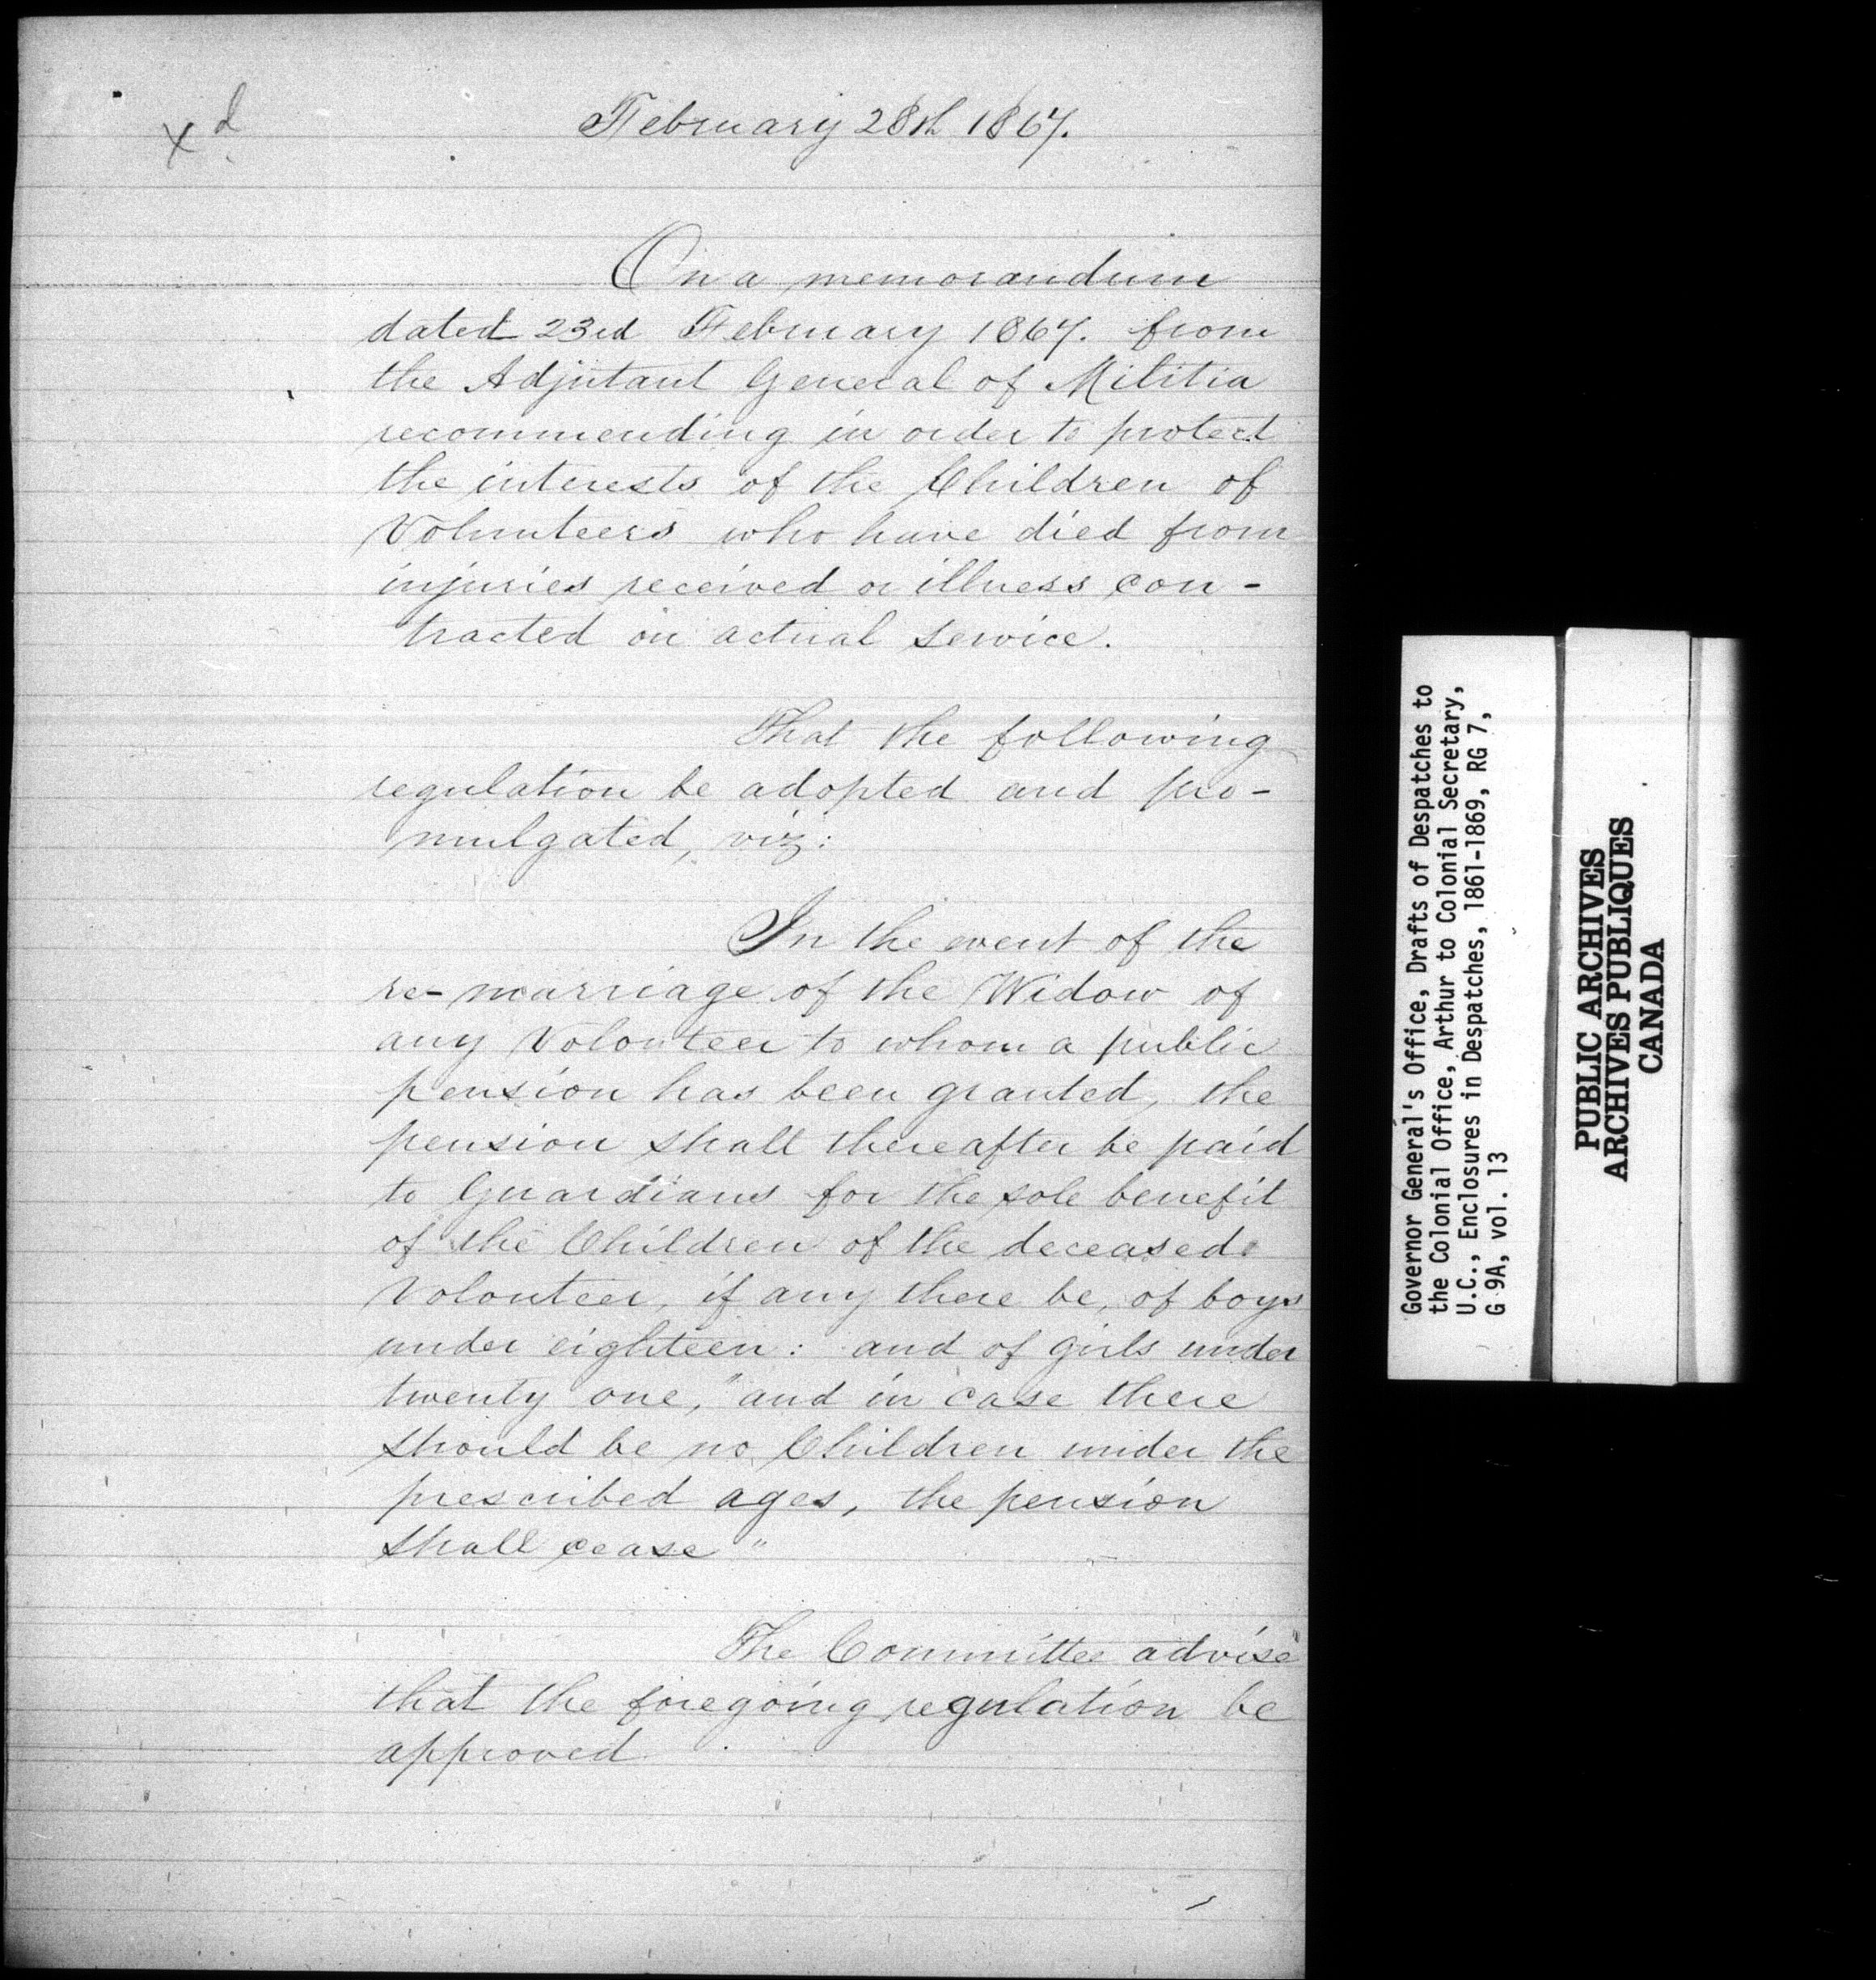 xd
February 28th 1867.
On a memorandum
dated 23rd February 1867. from
the Adjutant General of Militia
recommending in order to protect
the interests of the Children of
Volunteers who have died from
injuries received or illness con-
tracted on actual service.
That the following
regulation be adopted and pro-
mulgated, viz:
In the event of the
re-marriage of the Widow of
any Volonteer to whom a public
pension has been granted, the
pension shall thereafter be paid
to Guardians for the sole benefit
of the Children of the deceased
Volonteer, if any there be, of boys
under eighteen: and of girls under
twenty one, "and in case there
should be no Children under the
prescribed ages, the pension
shall cease"
The Committee advise
that the foregoing regulation be
approved
Governor General's Office, Drafts of Despatches to
the Colonial Office, Arthur to Colonial Secretary,
U.C., Enclosures in Despatches, 1861-1869, RG 7,
G 9A, vol. 13
PUBLIC ARCHIVES
ARCHIVES PUBLIQUES
CANADA